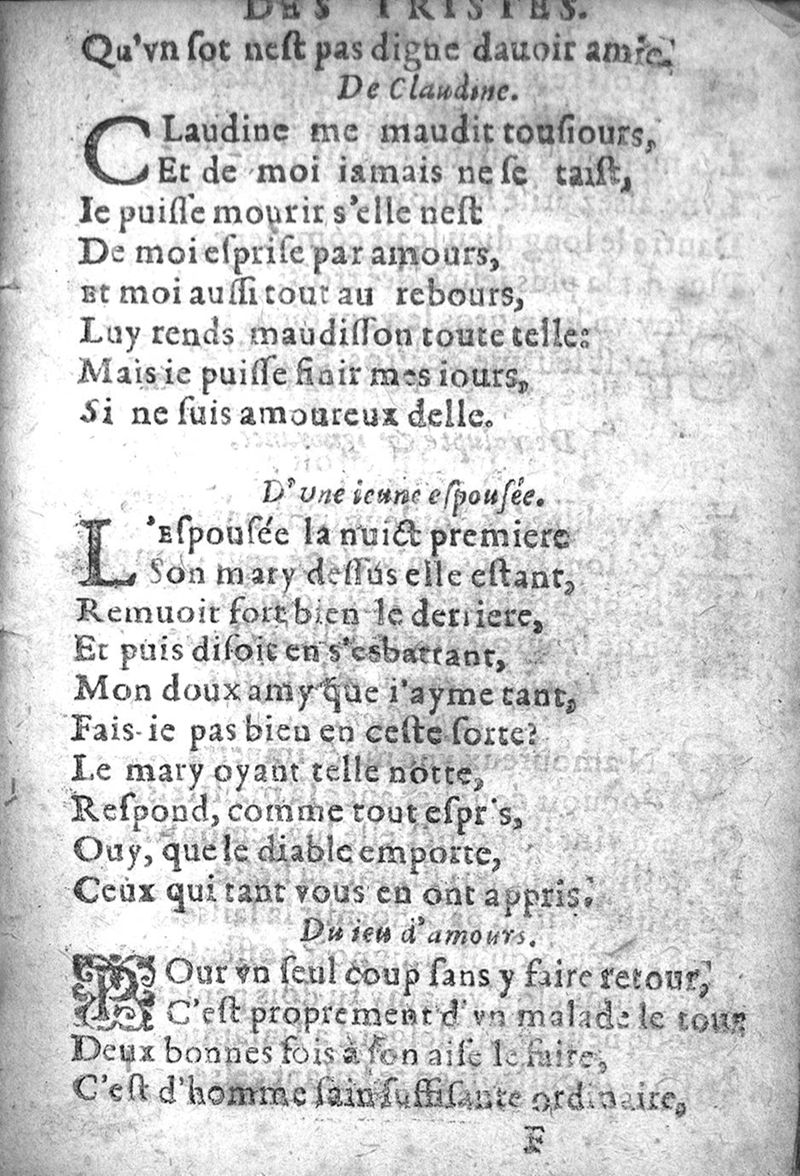 DES TRISTES.
Qu'vn sot nest pas digne dauoir amie.
De Claudine.
CLaudine me maudit tousiours,
Et de moi iamais ne se taist,
Ie puisse mourir s'elle nest
De moi esprise par amours,
Et moi aussi tout au rebours,
Luy rends maudisson toute telle:
Mais ie puisse finir mes iours,
Si ne suis amoureux delle.
D'vne ieune espousée.
L'Espousée la nuict premiere
Son mary dessus elle estant,
Remuoit fort bien le derriere,
Et puis disoit en s'esbattant,
Mon doux amy que i'ayme tant,
Fais-ie pas bien en ceste sorte?
Le mary oyant telle notte,
Respond, comme tout espr's,
Ouy, que le diable emporte,
Ceux qui tant vous en ont appris.
Du ieu d'amours.
POur vn seul coup sans y faire retour,
C'est proprement d'vn malade le tour
Deux bonnes fois à son aise le faire,
C'est d'homme sain suffisante ordinaire,
F